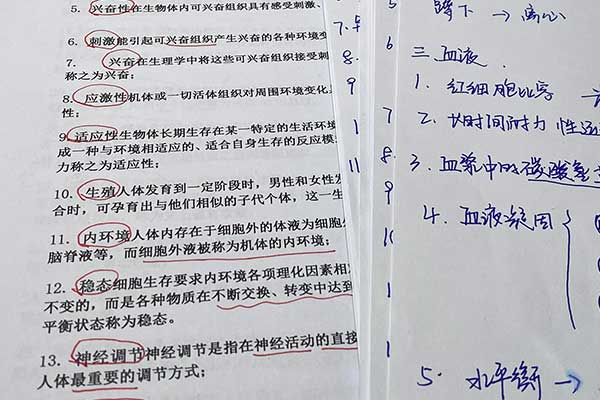 5. 兴奋性在生物体内可兴奋组织具有感受刺激、
6. 刺激能引起可兴奋组织产生兴奋的各种环境变
7. 兴奋在生理学中将这些可兴奋组织接受刺
称之为兴奋；
8. 应激性机体或一切活体组织对周围环境变化具
性；
9. 适应性生物体长期生存在某一特定的生活环境
成一种与环境相适应的、适合自身生存的反应模
力称之为适应性；
10. 生殖人体发育到一定阶段时，男性和女性发
合时，可孕育出与他们相似的子代个体，这一生
11. 内环境人体内存在于细胞外的体液为细胞外
脑脊液等，而细胞外液被称为机体的内环境；
12. 稳态细胞生存要求内环境各项理化因素相
不变的，而是各种物质在不断交换、转变中达到
平衡状态称为稳态。
13. 神经调节神经调节是指在神经活动的直接
人体最重要的调节方式；
7.
8.
9
1
11
5
6
7
8.
9
1
1
→ 离心
三. 血液
1. 红细胞比容
2. 长时间耐力性运
3. 血浆中的碳酸氢
4. 血液凝固
5. 水平衡 →